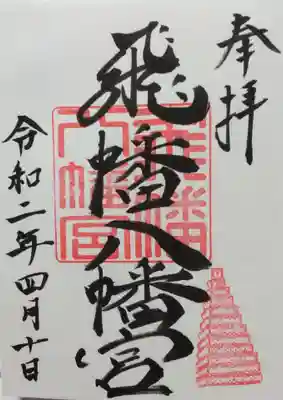 奉拝
飛幡八幡宮
飛幡
八幡宮
令和二年四月十日